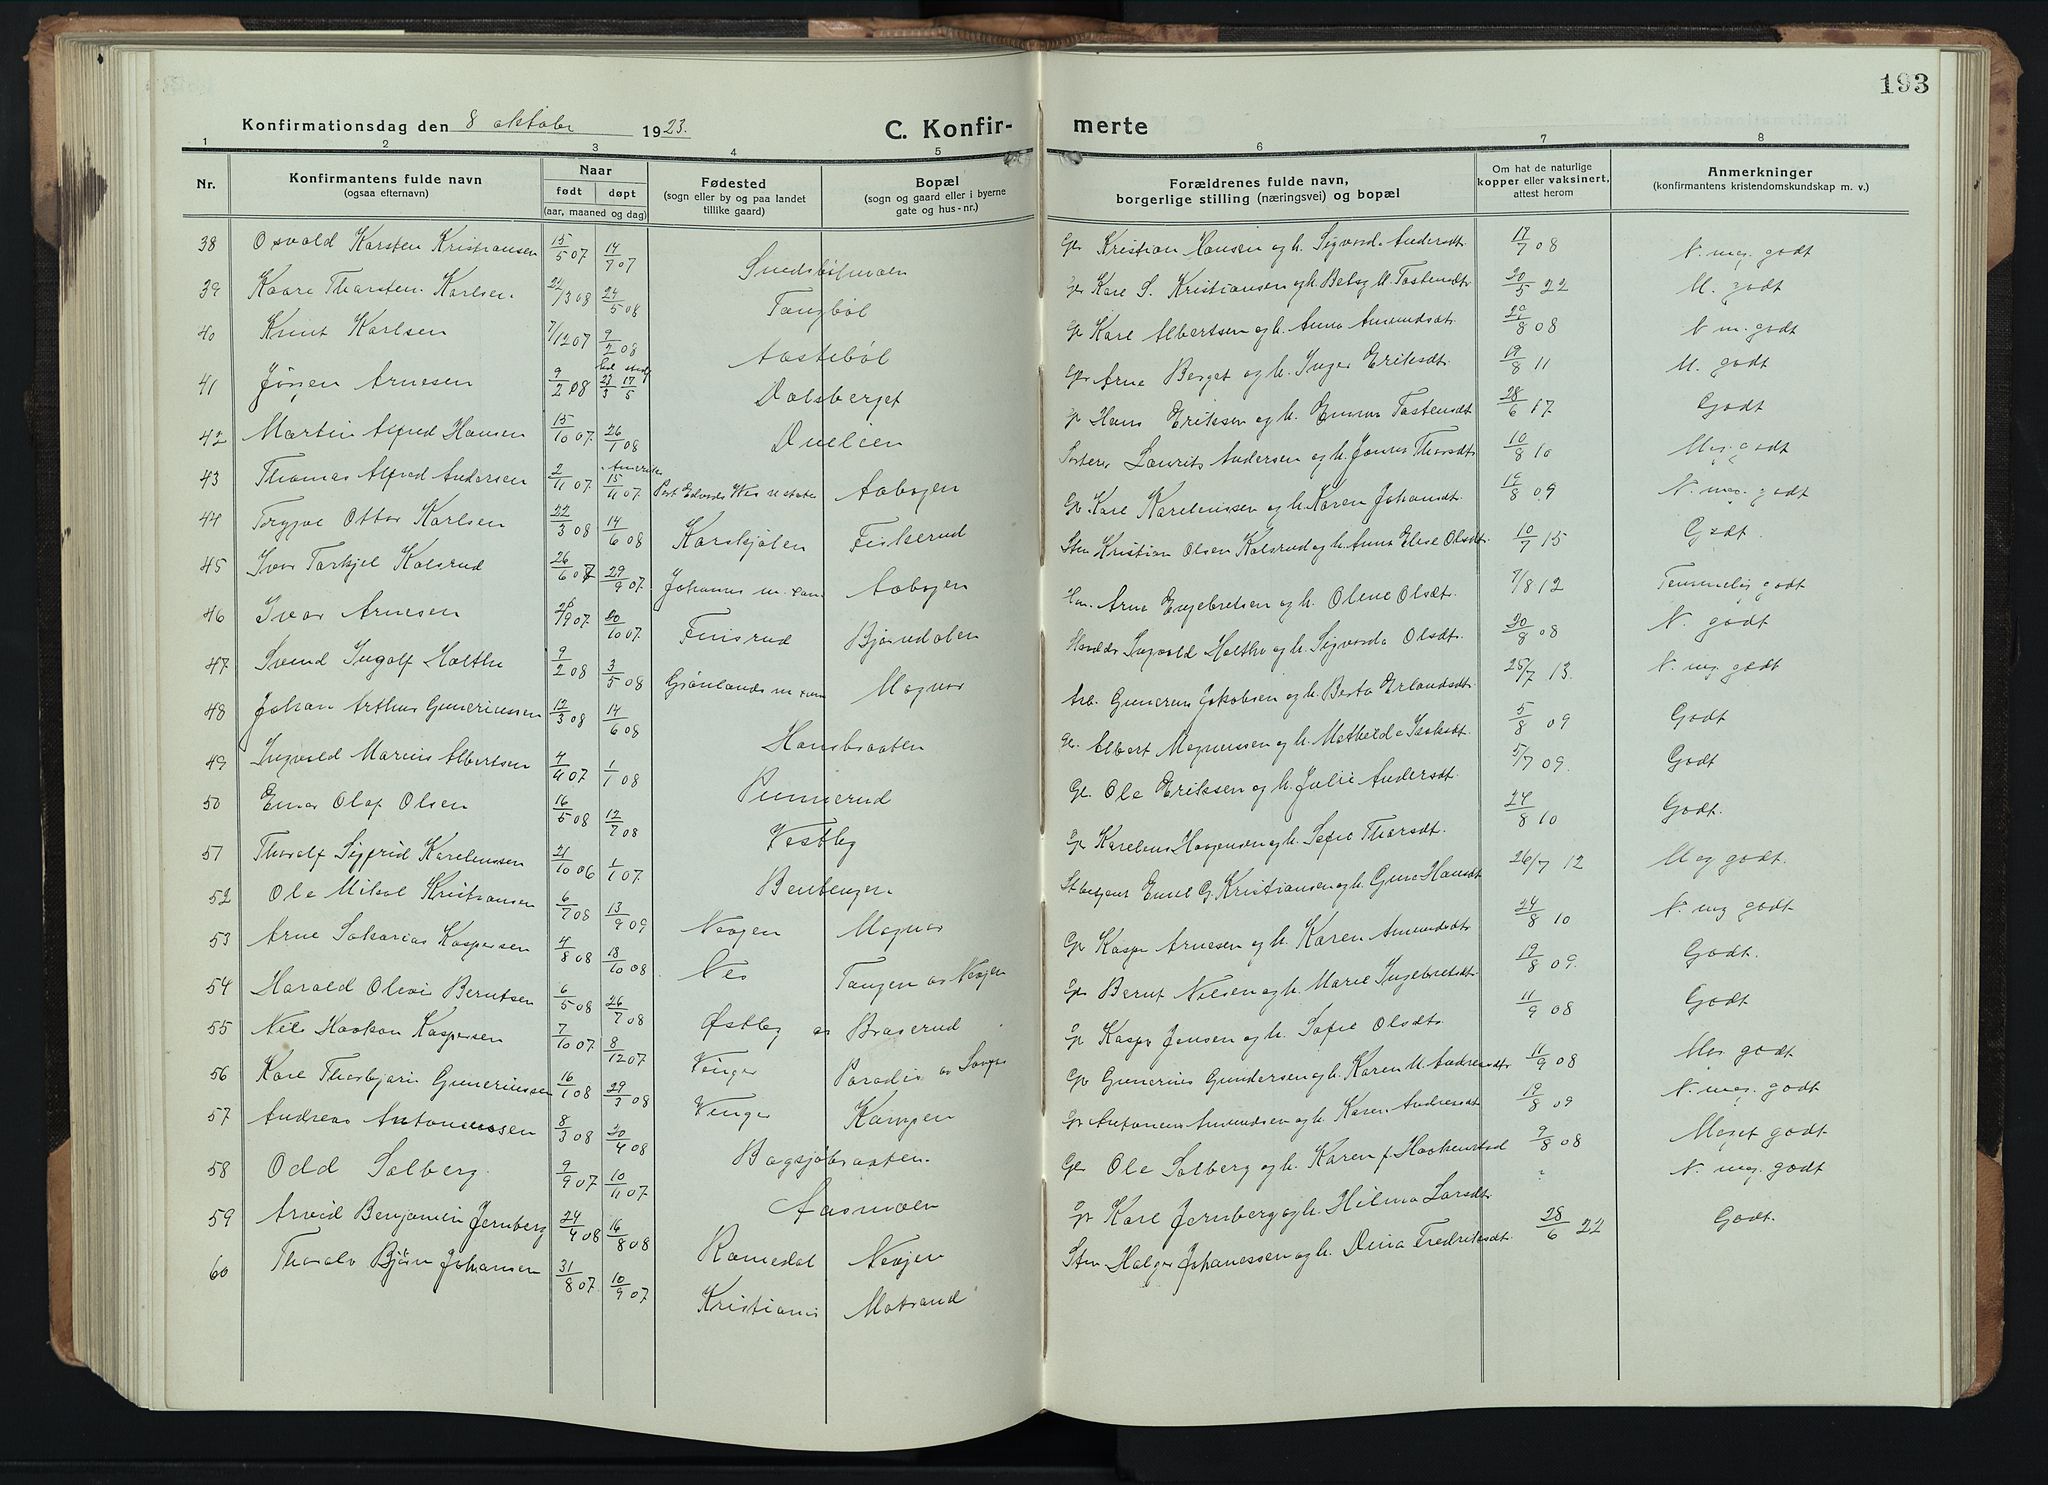 193
Konfirmationsdag den 8 oktober 1923.
C. Konfirmerte
1 2 3 4 5 6 7 8
Nr. Konfirmantens fulde navn (ogsaa efternavn) Naar født døpt (aar, maaned og dag) Fødested (sogn eller by og paa landet tillike gaard) Bopæl (sogn og gaard eller i byerne gate og hus-nr.) Forældrenes fulde navn, borgerlige stilling (næringsvei) og bopæl Om hat de naturlige kopper eller vaksinert, attest herom Anmerkninger (konfirmantens kristendomskundskap m. v.)
38 Osvald Karsten Kristiansen 15/5 07 14/7 07 Gbr Kristian Hansen og h. Sigvarda Andersdt. 17/7 08 N. meg. godt
39 Kaare Thorsten Karlsen 22/3 08 24/5 08 Tangbøl Gbr Karl S. Kristiansen og h. Betsy M. Tostensdt. 20/5 22 M. godt
40 Knut Karlsen 7/12 07 9/2 08 Aastebøl Gbr Karl Albertsen og h. Anna Amundsdt. 20/8 08 N m. godt
41 Jørgen Arnesen 9/2 08 23/3 17/5 Dalsberget Gbr Arne Berget og h. Inger Eriksdt. 19/8 11 M. godt
42 Martin Alfred Hansen 15/10 07. 26/1 08 Duelien Gbr Hans Eriksen og h. Emma Tostensdt 28/6 17. Godt
43 Thomas Alfred Andersen 2/11 07. 15/11 07. Amerika Port Edvards Wis. u. states Aabogen Laurits Andersen og h. Thorsdt 10/8 10 Meg. godt
44 Torgjve Ottar Karlsen 22/3 08 14/6 08 Karskjølen Fiskerud Gbr Karl Karelinssen og h. Karen Johansdt. 19/8 09 N. meg. godt
45 Ivar Torkjel Kolsrud 26/6 07 29/9 07. Johannes m. Aabogen Kristian Olsen Kolsrud og h. Anna Elise Olsdt. 10/7 15 Godt.
46 Ivar Arnesen 28/9 07. 20/10 07. Finsrud Bjørndalen Arne Engebretsen og h. Oline Olsdt. 7/8 12 Temmelig godt
47 Svend Ingolf Holthe 9/2 08 3/5 08 Grønlands m. Magnor Ingvald Holthe og h. Sigvarda Olsdt. 20/8 08 N. godt
48 Johan Arthur Guneriussen 12/3 08 14/6 08 Arb. Gunerius Jakobsen og h. Berta Erlandsdt. 25/7 13. N. mg. godt
49 Ingvald Marius Albertsen 4/4 07. 1/1 08 Albert Magnussen og h. Mathilde Isaksdt. 5/8 09 Godt
50 Einar Olaf Olsen 16/5 08 12/7 08 Punnerud Gbr. Ole Eriksen og h. Julie Andersdt. 5/7 09. Godt
51 Thoralf Sigfrid Karelinssen 21/10 06 1/1 07. Vestby Gbr Karelius Haagensen og h. Sofie Thorsdt. 24/8 10 Godt.
52 Ole Mikal Kristiansen 6/7 08 13/9 09 Emil G. Kristiansen og h. Gina Hansdt 26/7 12 Meg godt.
53 Arne Sakarias Kaspersen 4/8 08 18/10 08 Nesjen Magnor Gbr Kasper Arnesen og h. Karen Amundsdt. 24/8 10 N. mg godt
54 Harald Olai Berntsen 6/5 08 26/7 08 Nes Tangen av Nesjen Gbr Bernt Nilsen og h. Marie Ingebretsdt. 19/8 09. Godt.
55 Nils Haakon Kaspersen 7/10 07. 8/12 07 Østby av Braserud Gbr Kasper Jensen og h. Sofie Olsdt. 11/9 08 Godt
56 Karl Thorbjørn Guneriussen 16/1 08 29/3 08 Vinger Paradis av Gbr Gunerius Gundersen og h. Karen M. Andreasdt. 11/9 08 Meg. godt
57 Andreas Antoniussen 8/3 08 20/4 08 Vinger Kampen Gbr Antonius Amundsen og h. Karen Andreasdt. 19/8 09 N. meg. godt
58 Odd Solberg. 9/9 07 10/11 07. Bogsjøbraaten. Gbr Ole Solberg og h. Karen f. Haakenstad 9/8 08 Meget godt
59 Arvid Benjamin Jernberg 24/4 08 16/8 08 Aasmoen Gbr Karl Jernberg og h. Hilma Larsdt. ? N. meg. godt
60 Thoralv Bjørn Johansen 31/8 07. 10/9 07. Romedal Nesjen Holger Johanessen og h. Dina Fredriksdt. 28/6 22 Godt.
Kristiania Matrand